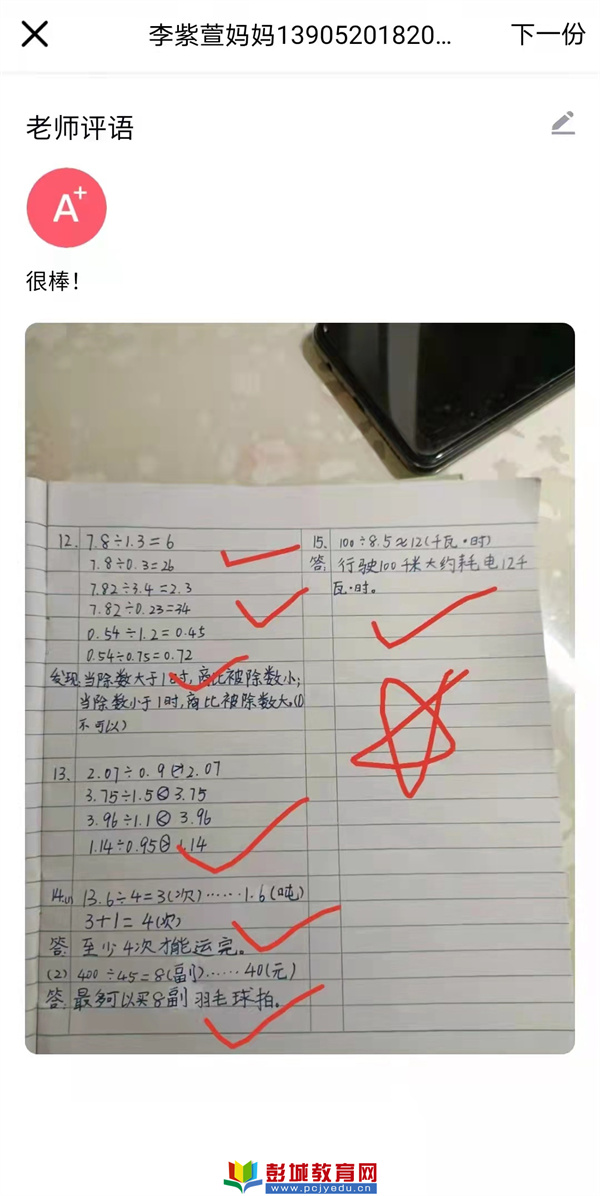 李紫萱妈妈13905201820...
下一份
老师评语
A+
很棒！
12. 7.8÷1.3=6
7.8÷0.3=26
7.82÷3.4=2.3
7.82÷0.23=34
0.54÷1.2=0.45
0.54÷0.75=0.72
发现:当除数大于1时,商比被除数小;
当除数小于1时,商比被除数大。(0
不可以)
13、 2.07÷0.9>2.07
3.75÷1.5<3.75
3.96÷1.1<3.96
1.14÷0.95>1.14
14.(1) 13.6÷4=3(次)……1.6(吨)
3+1=4(次)
答:至少4次才能运完。
(2) 400÷45=8(副)……40(元)
答:最多可以买8副羽毛球拍。
15、 100÷8.5≈12(千瓦·时)
答:行驶100千米大约耗电12千
瓦·时。
彭城教育网
www.pcjyedu.cn